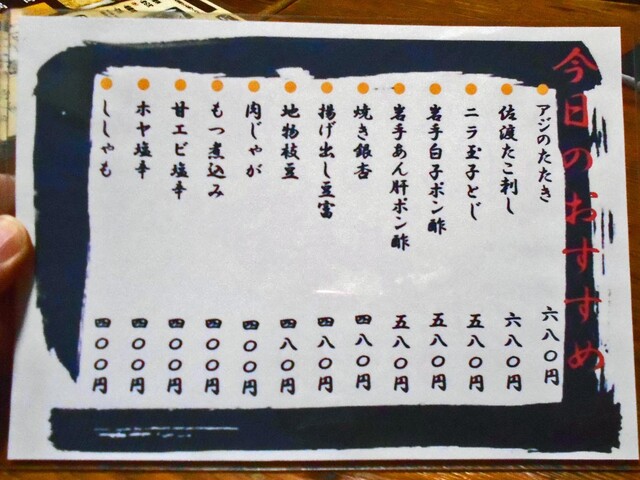 今日のおすすめ
アジのたたき 六八〇円
佐渡たこ刺し 六八〇円
ニラ玉子とじ 五八〇円
岩手白子ポン酢 五八〇円
岩手あん肝ポン酢 五八〇円
焼き銀杏 四八〇円
揚げ出し豆富 四八〇円
地物枝豆 四八〇円
肉じゃが 四〇〇円
もつ煮込み 四〇〇円
甘エビ塩辛 四〇〇円
ホヤ塩辛 四〇〇円
ししゃも 四〇〇円